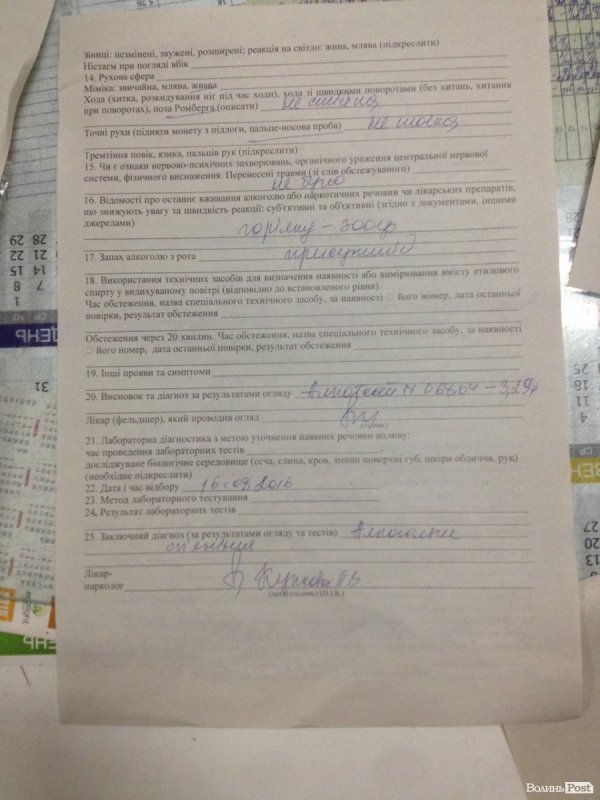 Зіниці: незмінені, звужені, розширені; реакція на світло: жива, млява (підкреслити)
Ністагм при погляді вбік
14. Рухова сфера
Міміка: звичайна, млява, жвава
Хода (хитка, розкидування ніг під час ходи), хода зі швидкими поворотами (без хитань, хитання
при поворотах), поза Ромберга (описати) не стійка
Точні рухи (підняти монету з підлоги, пальце-носова проба) не точна
Тремтіння повік, язика, пальців рук (підкреслити)
15. Чи є ознаки нервово-психічних захворювань, органічного ураження центральної нервової
системи, фізичного виснаження. Перенесені травми (зі слів обстежуваного)
не було
16. Відомості про останнє вживання алкоголю або наркотичних речовин чи лікарських препаратів,
що знижують увагу та швидкість реакції: суб'єктивні та об'єктивні (згідно з документами, іншими
джерелами) горілку - 300гр
17. Запах алкоголю з рота присутній
18. Використання технічних засобів для визначення наявності або вимірювання вмісту етилового
спирту у видихуваному повітрі (відповідно до встановленого рівня).
Час обстеження, назва спеціального технічного засобу, за наявності □ його номер, дата останньої
повірки, результат обстеження
Обстеження через 20 хвилин. Час обстеження, назва спеціального технічного засобу, за наявності
□ його номер, дата останньої повірки, результат обстеження
19. Інші прояви та симптоми
20. Висновок та діагноз за результатами огляду Алкотест N 06864 -
Лікар (фельдшер), який проводив огляд
(підпис)
21. Лабораторна діагностика з метою уточнення наявних речовин впливу:
час проведення лабораторних тестів
досліджуване біологічне середовище (сеча, слина, кров, змиви поверхні губ, шкіри обличчя, рук)
(необхідне підкреслити)
22. Дата і час відбору 16.08 2016
23. Метод лабораторного тестування
24. Результат лабораторних тестів
25. Заключний діагноз (за результатами огляду та тестів) Алкогольне
сп'яніння
Лікар-
нарколог
(дата) (підпис) (П.І.Б.)
31
ДЕНЬ
ВолиньPost